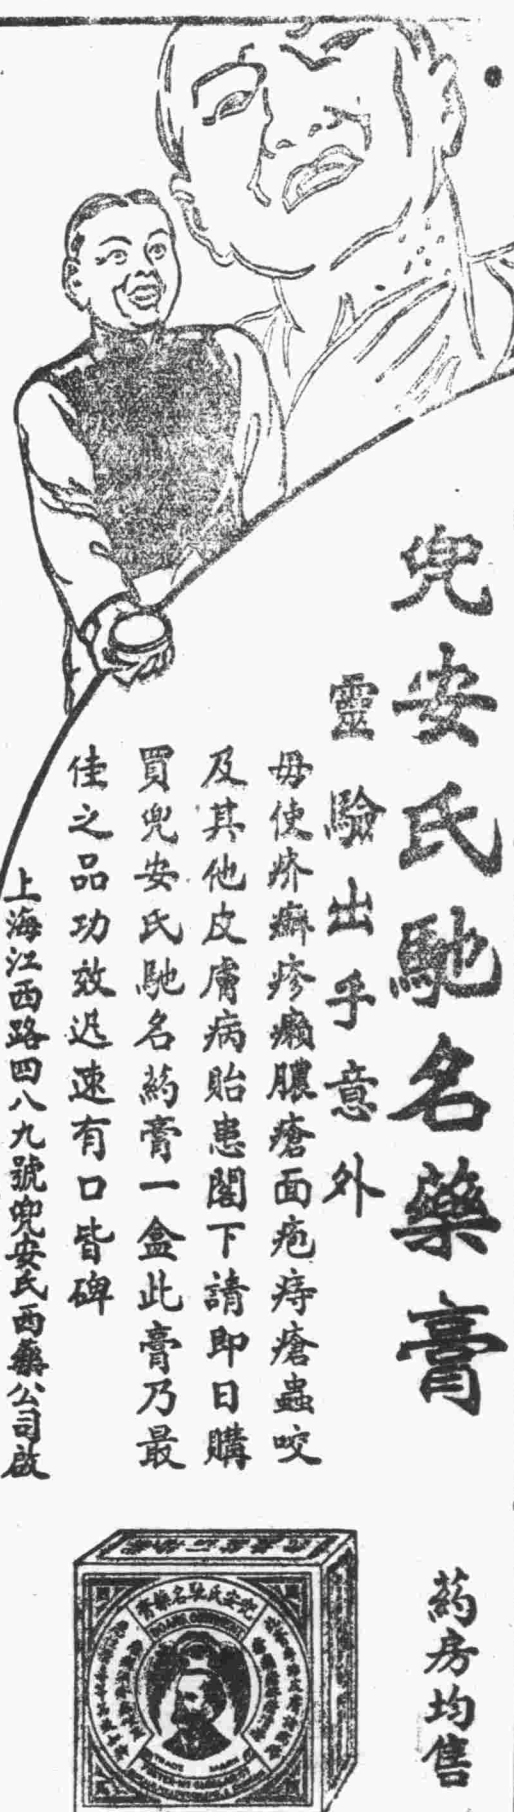 兜安氏馳名藥膏
靈驗出乎意外
毋使疥癬疹癩膿瘡面疱痔瘡蟲咬
及其他皮膚病貽患閣下請即日購
買兜安氏馳名葯膏一盒此膏乃最
佳之品功效迅速有口皆碑
上海江西路四八九號兜安氏西藥公司啟
葯房均售
兜安氏馳名藥膏
DOAN'S OINTMENT
TRADE MARK